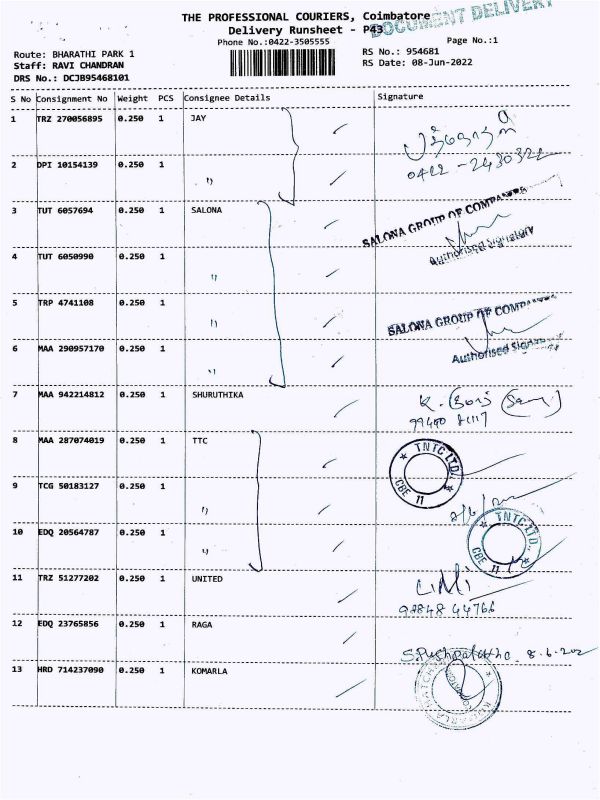 THE PROFESSIONAL COURIERS, Coimbatore
DOCUMENT DELIVERY
Delivery Runsheet - P43
Phone No.:0422-3505555
Page No.:1
Route: BHARATHI PARK 1
RS No.: 954681
Staff: RAVI CHANDRAN
RS Date: 08-Jun-2022
DRS No.: DCJB95468101
S No Consignment No Weight PCS Consignee Details Signature
1 TRZ 270056895 0.250 1 JAY
0422 - 2430322
2 DPI 10154139 0.250 1 "
3 TUT 6057694 0.250 1 SALONA
SALONA GROUP OF COMPANIES
Authorised Signatory
4 TUT 6050990 0.250 1 "
5 TRP 4741108 0.250 1 "
SALONA GROUP OF COMPANIES
6 MAA 290957170 0.250 1 "
Authorised Signatory
7 MAA 942214812 0.250 1 SHURUTHIKA
8 MAA 287074019 0.250 1 TTC
TNTC LTD. CBE 11
9 TCG 50183127 0.250 1 "
10 EDQ 20564787 0.250 1 "
TNTC LTD. CBE 11
11 TRZ 51277202 0.250 1 UNITED
98848 44766
12 EDQ 23765856 0.250 1 RAGA
13 HRD 714237090 0.250 1 KOMARLA